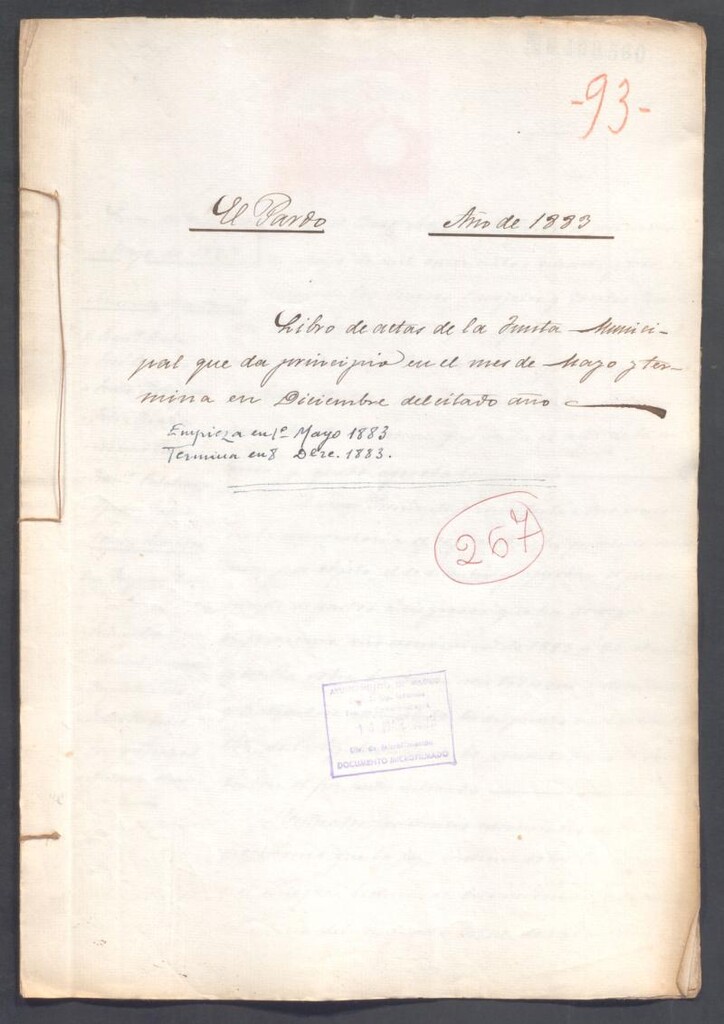 -93-
El Pardo Año de 1883
Libro de actas de la Junta Munici-
pal que da principio en el mes de Mayo y ter-
mina en Diciembre del citado año
Empieza en 1º Mayo 1883
Termina en 8 Dcre. 1883.
267
DOCUMENTO MICROFILMADO